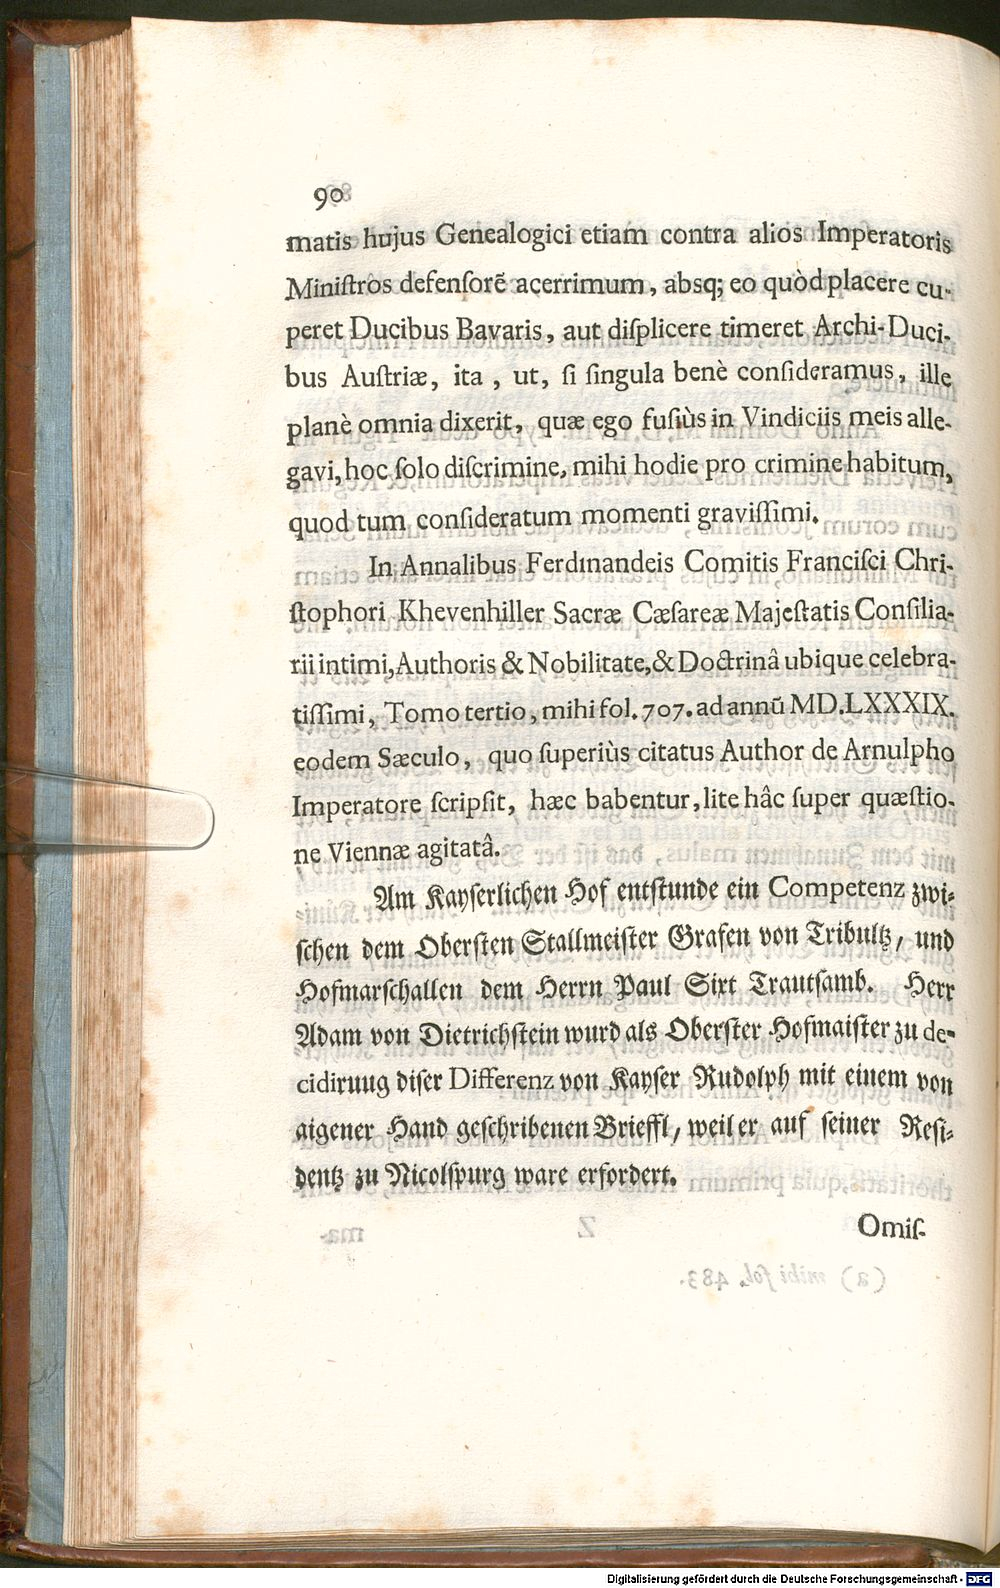 90
matis hujus Genealogici etiam contra alios Imperatoris
Miniſtrôs defenſorē acerrimum, absq; eo quòd placere cu-
peret Ducibus Bavaris, aut diſplicere timeret Archi-Duci-
bus Auſtriæ, ita, ut, ſi ſingula benè conſideramus, ille
planè omnia dixerit, quæ ego fuſiùs in Vindiciis meis alle-
gavi, hoc ſolo diſcrimine, mihi hodie pro crimine habitum,
quod tum conſideratum momenti graviſſimi.
In Annalibus Ferdinandeis Comitis Franciſci Chri-
ſtophori Khevenhiller Sacræ Cæſareæ Majeſtatis Conſilia-
rii intimi, Authoris & Nobilitate, & Doctrinâ ubique celebra-
tiſſimi, Tomo tertio, mihi fol. 707. ad annū MD.LXXXIX.
eodem Sæculo, quo ſuperiùs citatus Author de Arnulpho
Imperatore ſcripſit, hæc babentur, lite hâc ſuper quæſtio-
ne Viennæ agitatâ.
Am Kayſerlichen Hof entſtunde ein Competenz zwi-
ſchen dem Oberſten Stallmeiſter Grafen von Tribultz, und
Hofmarſchallen dem Herrn Paul Sixt Trautſamb. Herr
Adam von Dietrichſtein wurd als Oberſter Hofmaiſter zu de-
cidiruug diſer Differenz von Kayſer Rudolph mit einem von
aigener Hand geſchribenen Brieffl, weil er auf ſeiner Reſi-
dentz zu Nicolſpurg ware erfordert.
Omiſ-
Digitalisierung gefördert durch die Deutsche Forschungsgemeinschaft - DFG